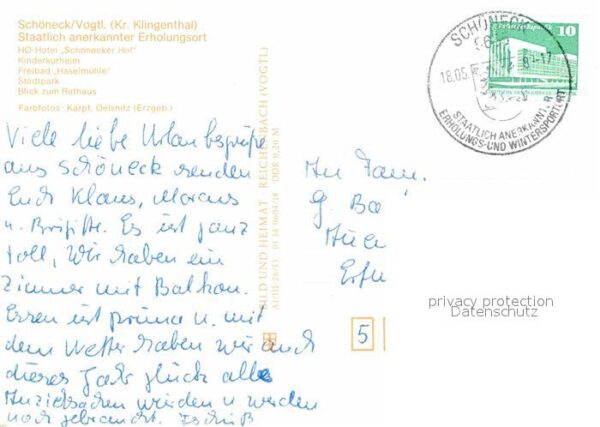 Schöneck/Vogtl. (Kr. Klingenthal)
Staatlich anerkannter Erholungsort
HO-Hotel „Schönecker Hof"
Kinderkurheim
Freibad „Haselmühle"
Stadtpark
Blick zum Rathaus
Farbfotos: Karpf, Oelsnitz (Erzgeb.)
Viele liebe Urlaubsgrüße
aus Schöneck senden
Euch Klaus, Marcus
u. Brigitte. Es ist ganz
toll, Wir haben ein
Zimmer mit Balkon.
Essen ist prima u. mit
dem Wetter haben wir auch
dieses Jahr glück alle
Anziehsachen wurden u. werden
noch gebraucht. Tschüß
BILD UND HEIMAT REICHENBACH (VOGTL)
DDR 0,20 M
SCHÖNECK
18.05.
-17
STAATLICH ANERKANNTER
ERHOLUNGS- UND WINTERSPORTORT
10
An Fam.
G. Ba
Erfu
5
privacy protection
Datenschutz